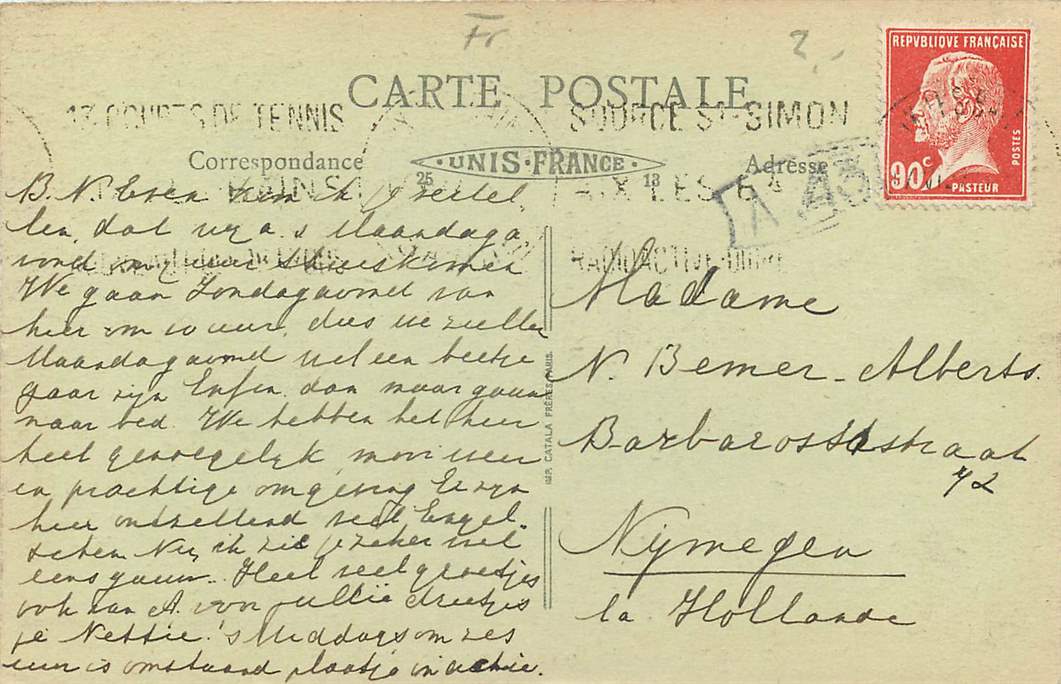 Fr
2,-
CARTE POSTALE
REPVBLIQVE FRANÇAISE
POSTES
90c
PASTEUR
13 COURTS DE TENNIS
SOURCE St SIMON
AIX LES
RADIOACTIVE
Correspondance
25 UNIS-FRANCE 13
Adresse
IMP. CATALA FRÈRES, PARIS.
B. N. Even kom ik je vertel
len, dat wij a.s Maandaga
vond om uur thuiskomen
We gaan Zondagavond van
hier om 10 uur, dus we zullen
Maandagavond wel een beetje
gaar zijn Enfin dan maar gauw
naar bed. We hebben het hier
heel genoegelijk, mooi weer
en prachtige omgeving Er zijn
hier ontzettend veel Engel-
schen. Nu, ik zie je zeker wel
eens gauw. Heel veel groetjes
ook van A. voor jullie drietjes
je Nettie. 's Middags om zes
uur is omstaand plaatje in actie.
Madame
N. Bemer-Alberts.
Barbarossastraat
72
Nijmegen
la Hollande